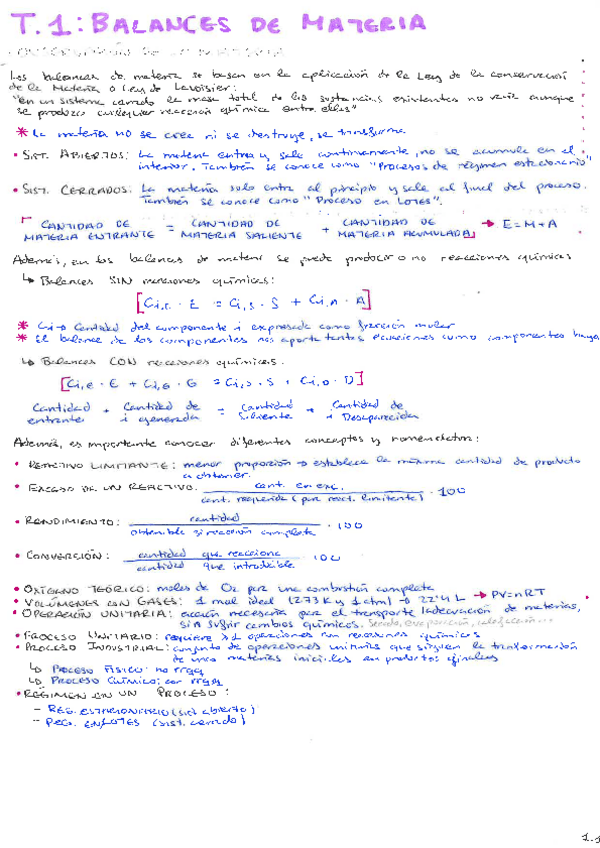 T.1: BALANCES DE MATERIA
CONSERVACIÓN DE LA MATERIA
Los balances de materia se basan en la aplicación de la Ley de la conservación
de la Materia o Ley de Lavoisier:
"en un sistema cerrado la masa total de las sustancias existentes no varía aunque
se produzca cualquier reacción química entre ellas"
* La materia no se crea ni se destruye, se transforma
• SIST. ABIERTOS: La materia entra y sale continuamente, no se acumula en el
interior. También se conoce como "Procesos de régimen estacionario"
• SIST. CERRADOS: La materia solo entra al principio y sale al final del proceso.
También se conoce como "Proceso en Lotes".
CANTIDAD DE MATERIA ENTRANTE = CANTIDAD DE MATERIA SALIENTE + CANTIDAD DE MATERIA ACUMULADA → E=M+A
Además, en los balances de materia se puede producir o no reacciones químicas
↳ Balances SIN reacciones químicas:
[Ci,E · E = Ci,S · S + Ci,A · A]
* Ci → Cantidad del componente i expresada como fracción molar
* El balance de los componentes nos aporta tantas ecuaciones como componentes haya
↳ Balances CON reacciones químicas.
[Ci,E · E + Ci,G · G = Ci,S · S + Ci,D · D]
Cantidad entrante + Cantidad de i generada = Cantidad Saliente + Cantidad de i Desaparecida
Además, es importante conocer diferentes conceptos y nomenclatura:
• REACTIVO LIMITANTE: menor proporción → establece la máxima cantidad de producto
a obtener.
• EXCESO DE UN REACTIVO: cant. en exc. / cant. requerida (por react. limitante) · 100
• RENDIMIENTO: cantidad / obtenible si reacción completa · 100
• CONVERSIÓN: cantidad que reacciona / cantidad que introducible · 100
• OXÍGENO TEÓRICO: moles de O2 para una combustión completa
• VOLÚMENES CON GASES: 1 mol ideal (273 K y 1 atm) → 22'4 L → PV=nRT
• OPERACIÓN UNITARIA: acción necesaria para el transporte /adecuación de materias,
sin sufrir cambios químicos.
• PROCESO UNITARIO: requiere >1 operaciones con reacciones químicas
• PROCESO INDUSTRIAL: conjunto de operaciones unitarias que siguen la transformación
de unas materias iniciales en productos finales
↳ PROCESO FÍSICO: no rrqq
↳ PROCESO QUÍMICO: con rrqq
• RÉGIMEN EN UN PROCESO:
- REG. ESTACIONARIO (sist. abierto)
- REG. EN LOTES (sist. cerrado)